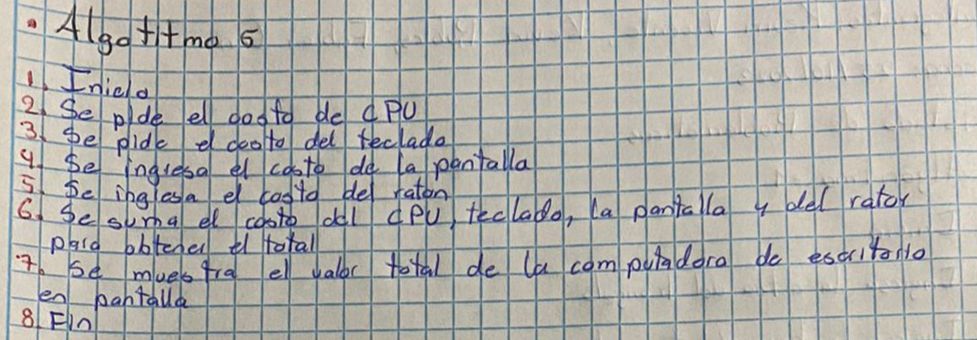 • Algoritmo 5
1. Inicio
2. Se pide el costo de CPU
3. Se pide el costo del teclado
4. Se ingresa el costo de la pantalla
5. Se ingresa el costo del raton
6. Se suma el costo del CPU, teclado, la pantalla y del raton
para obtener el total
7. Se muestra el valor total de la computadora de escritorio
en pantalla
8. Fin